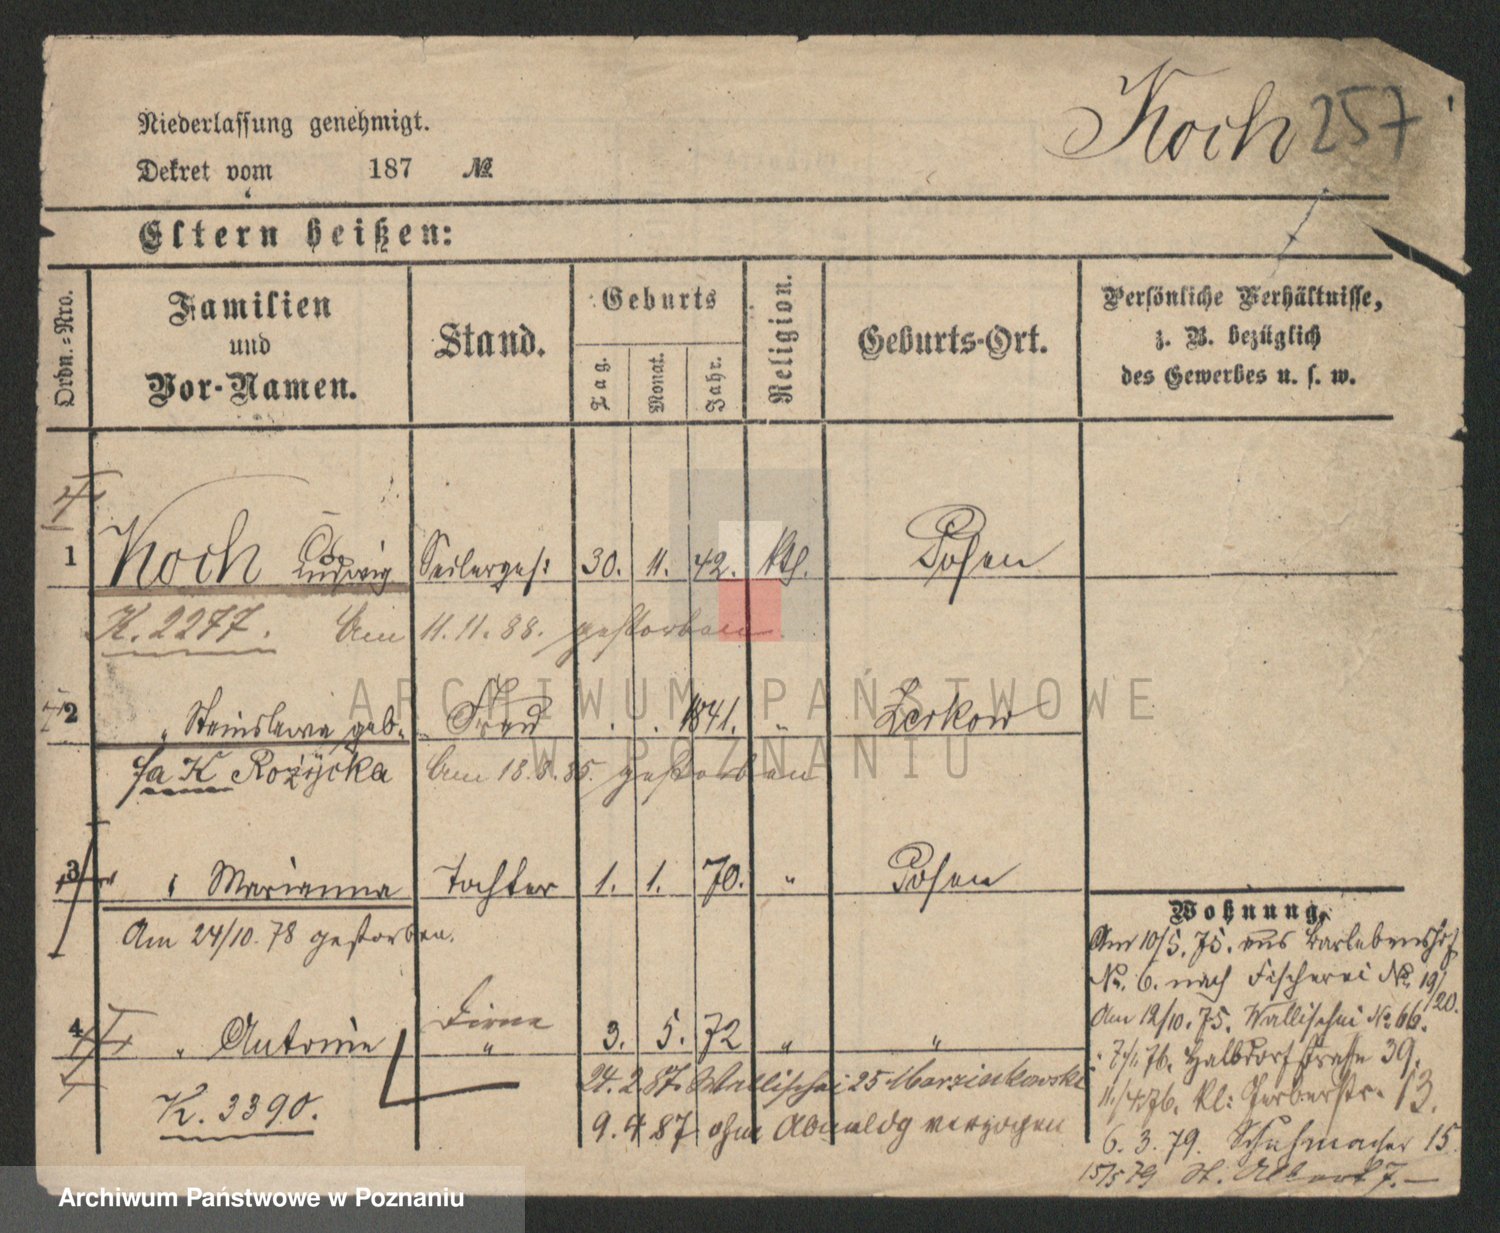 Niederlassung genehmigt.
Dekret vom 187 №
Koch 257
Eltern heißen:
Ordn.-Nro.
Familien
und
Vor-Namen.
Stand.
Geburts
Tag.
Monat.
Jahr.
Religion.
Geburts-Ort.
Persönliche Verhältnisse,
z. B. bezüglich
des Gewerbes u. s. w.
1 Koch Ludwig Seilerges: 30. 11. 42. kth. Posen
K. 2277. Am 11. 11. 88. gestorben.
2 " Stanislawa geb. Frau . . 1841. " Zerkow
K Rożycka Am 18. 8. 85. gestorben
3 " Marianna Tochter 1. 1. 70. " Posen
Am 24/10. 78 gestorben.
4 " Antonie " 3. 5. 72 " "
Dirne
K. 3390.
24. 2 87. Wallischei 25 Marzinkowski
9. 9 87 ohne Abmeldg verzogen
Wohnung.
Am 10/5. 75. aus Barlebenshof
No. 6. nach Fischerei No. 19/20.
Am 12/10. 75. Wallischei No 66.
76. Halbdorfstraße 39.
11/4 76. kl: Gerberstr. 13.
6. 3. 79. Schuhmacher 15
15/5 79 St. Adalbert 7.
ARCHIWUM PAŃSTWOWE
W POZNANIU
Archiwum Państwowe w Poznaniu